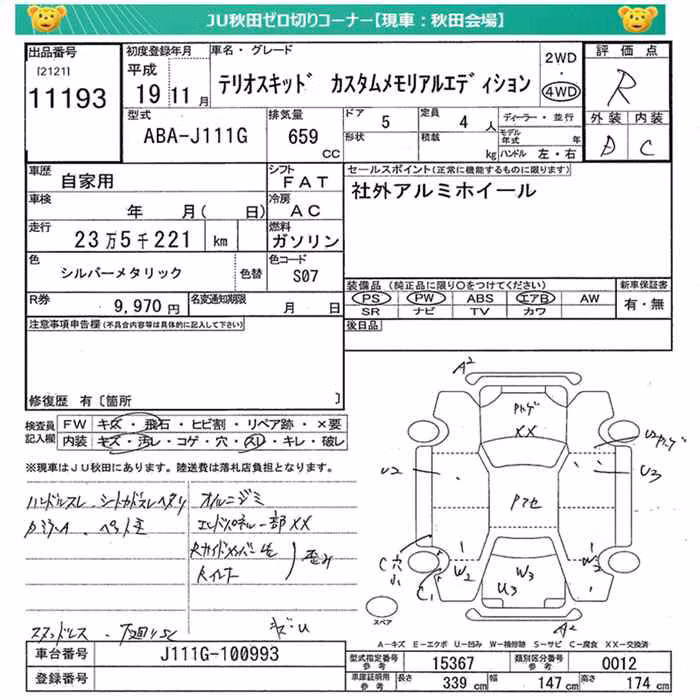 JU秋田ゼロ切りコーナー【現車：秋田会場】
出品番号 [2121] 11193
初度登録年月 平成 19 11 月
車名・グレード テリオスキッド カスタムメモリアルエディション
2WD ・ 4WD
評価点 R
外装 内装
D C
型式 ABA-J111G
排気量 659 CC
ドア 5
定員 4 人
形状
積載 kg
ディーラー・並行
モデル年式 年
ハンドル 左・右
車歴 自家用
シフト FAT
車検 年 月( 日)
冷房 AC
走行 23万5千221 km
燃料 ガソリン
色 シルバーメタリック 色替
色コード S07
R券 9,970 円
名変通知期限 月 日
セールスポイント(正常に機能するものに限ります)
社外アルミホイール
装備品 (純正品に限り○をつけてください)
PS PW ABS エアB AW
SR ナビ TV カワ
新車保証書 有・無
後日品
注意事項申告欄(不具合内容等は具体的に記入して下さい)
修復歴 有〔箇所 〕
検査員記入欄
FW キズ・飛石・ヒビ割・リペア跡・×要
内装 キズ・汚レ・コゲ・穴・スリ・キレ・破レ
※現車はJU秋田にあります。陸送費は落札店負担となります。
ハンドルスレ
オイルニジミ
一部XX
歪み
A2
XX
U2
U3
C穴小
C1
W2
W3
U3
W2
A2
スペア
A－キズ E－エクボ U－凹み W－補修跡 S－サビ C－腐食 XX－交換済
車台番号 J111G-100993
登録番号
型式指定番号 参考 15367
類別区分番号 参考 0012
車庫証明用 参考 長さ 339 cm 幅 147 cm 高さ 174 cm